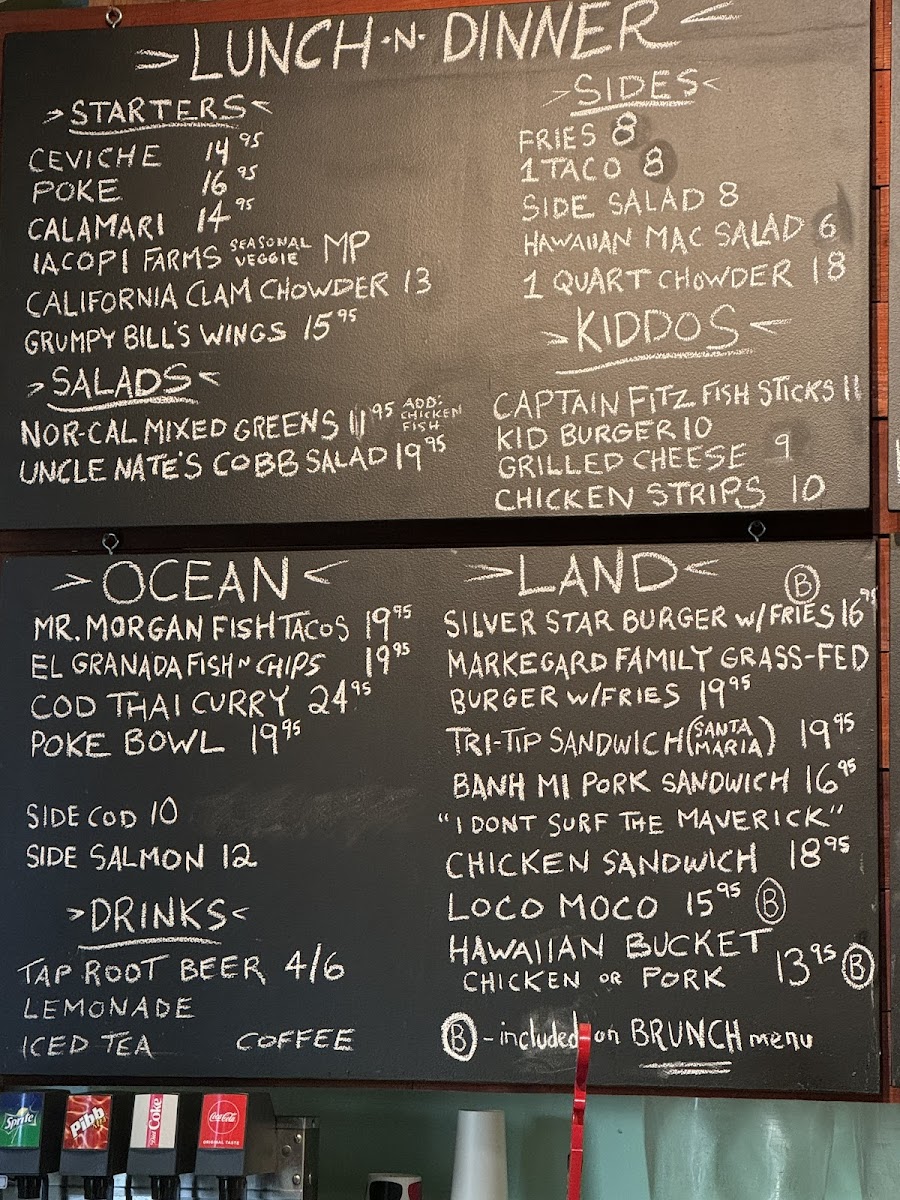 LUNCH -N- DINNER
STARTERS
CEVICHE 14 95
POKE 16 95
CALAMARI 14 95
IACOPI FARMS SEASONAL VEGGIE MP
CALIFORNIA CLAM CHOWDER 13
GRUMPY BILL'S WINGS 15 95
SALADS
NOR-CAL MIXED GREENS 11 95 ADD: CHICKEN FISH
UNCLE NATE'S COBB SALAD 19 95
SIDES
FRIES 8
1 TACO 8
SIDE SALAD 8
HAWAIIAN MAC SALAD 6
1 QUART CHOWDER 18
KIDDOS
CAPTAIN FITZ FISH STICKS 11
KID BURGER 10
GRILLED CHEESE 9
CHICKEN STRIPS 10
OCEAN
MR. MORGAN FISH TACOS 19 95
EL GRANADA FISH N CHIPS 19 95
COD THAI CURRY 24 95
POKE BOWL 19 95
SIDE COD 10
SIDE SALMON 12
DRINKS
TAP ROOT BEER 4/6
LEMONADE
ICED TEA COFFEE
LAND
SILVER STAR BURGER W/FRIES 16 95 B
MARKEGARD FAMILY GRASS-FED
BURGER W/FRIES 19 95
TRI-TIP SANDWICH (SANTA MARIA) 19 95
BANH MI PORK SANDWICH 16 95
"I DONT SURF THE MAVERICK"
CHICKEN SANDWICH 18 95
LOCO MOCO 15 95 B
HAWAIIAN BUCKET
CHICKEN OR PORK 13 95 B
B - included on BRUNCH menu
Sprite
Pibb
Diet Coke
Coca-Cola
ORIGINAL TASTE